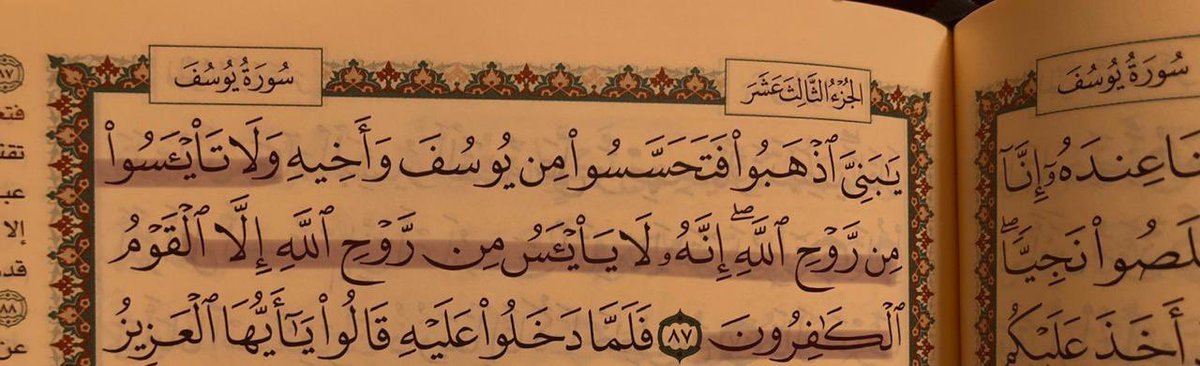 سُورَةُ يُوسُفَ
الجُزْءُ الثَّالِثَ عَشَرَ
يَٰبَنِىَّ ٱذْهَبُوا۟ فَتَحَسَّسُوا۟ مِن يُوسُفَ وَأَخِيهِ وَلَا تَا۟يْـَٔسُوا۟
مِن رَّوْحِ ٱللَّهِ ۖ إِنَّهُۥ لَا يَا۟يْـَٔسُ مِن رَّوْحِ ٱللَّهِ إِلَّا ٱلْقَوْمُ
ٱلْكَٰفِرُونَ ٨٧ فَلَمَّا دَخَلُوا۟ عَلَيْهِ قَالُوا۟ يَٰٓأَيُّهَا ٱلْعَزِيزُ
سُورَةُ يُوسُفَ
عِندَهُۥٓ إِنَّآ
نَجِيًّا ۖ
أَخَذَ عَلَيْكُم
٨٧
إلا
٨٨